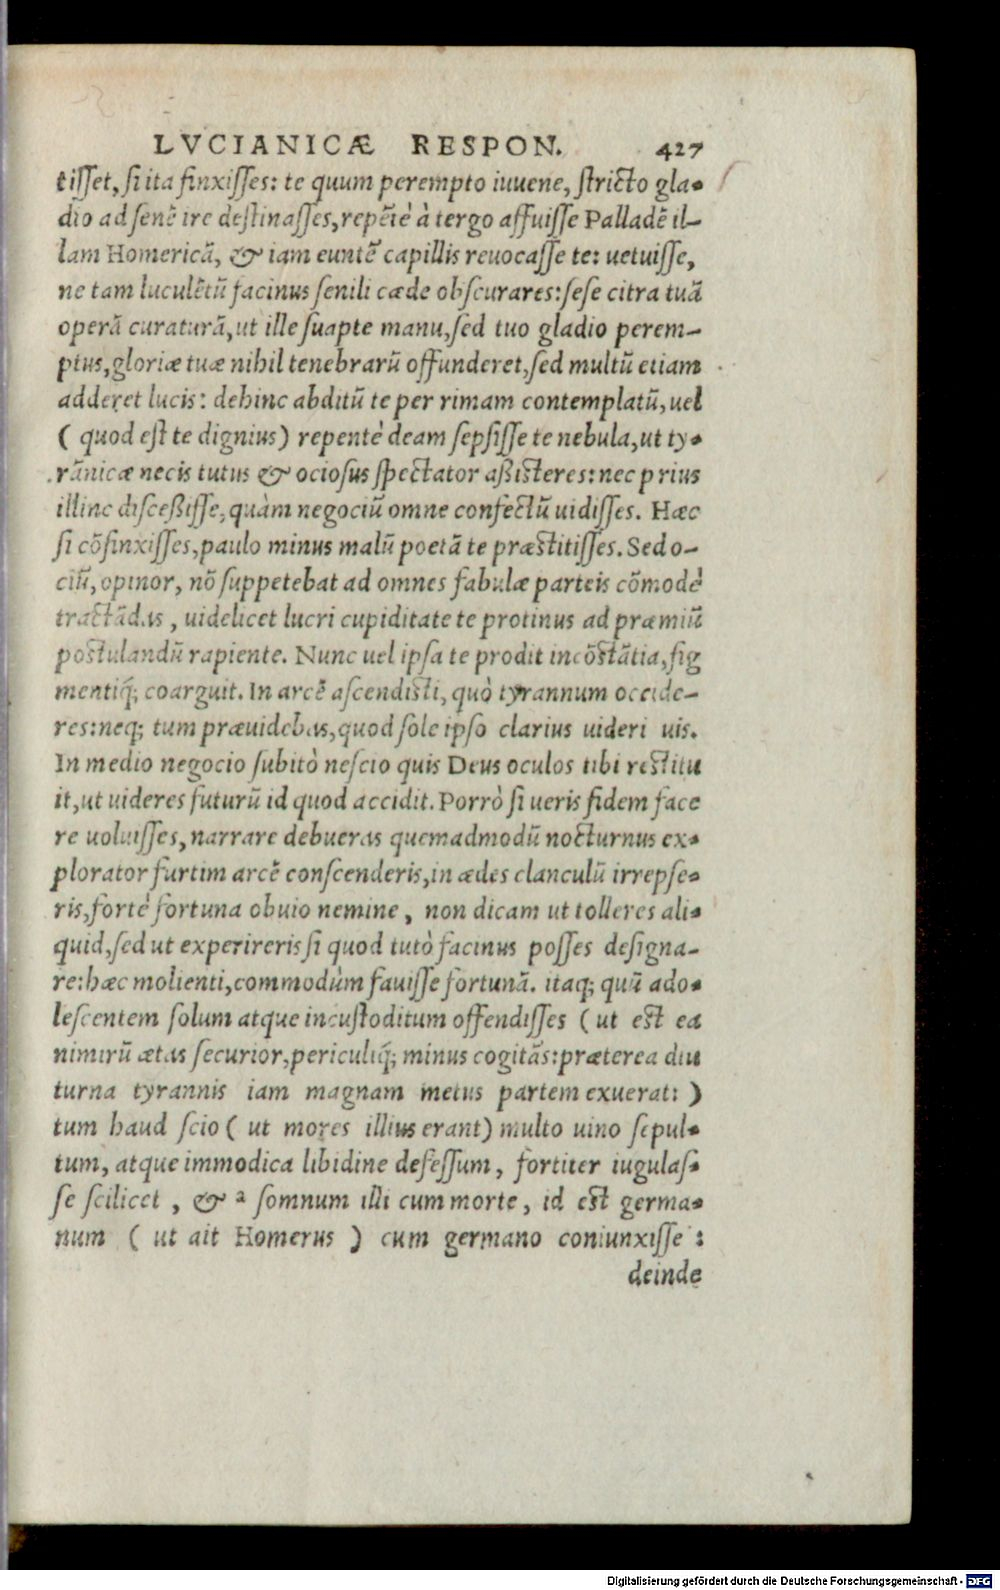 LVCIANICÆ RESPON. 427
tisset, si ita finxisses: te quum perempto iuuene, stricto gla-
dio ad senē ire destinasses, repētè à tergo affuisse Palladē il-
lam Homericā, & iam euntē capillis reuocasse te: uetuisse,
ne tam luculētū facinus senili cæde obscurares: sese citra tuā
operā curaturā, ut ille suapte manu, sed tuo gladio perem-
ptus, gloriæ tuæ nihil tenebrarū offunderet, sed multū etiam
adderet lucis: dehinc abditū te per rimam contemplatū, uel
( quod est te dignius) repentè deam sepsisse te nebula, ut ty-
rānicæ necis tutus & ociosus spectator aßisteres: nec prius
illinc disceßisse, quàm negociū omne confectū uidisses. Hæc
si cōfinxisses, paulo minus malū poetā te præstitisses. Sed o-
ciū, opinor, nō suppetebat ad omnes fabulæ parteis cōmodè
tractādas, uidelicet lucri cupiditate te protinus ad præmiū
postulandū rapiente. Nunc uel ipsa te prodit incōstātia, fig
mentiq́; coarguit. In arcē ascendisti, quò tyrannum occide-
res: neq; tum præuidebas, quod sole ipso clarius uideri uis.
In medio negocio subitò nescio quis Deus oculos tibi restitu
it, ut uideres futurū id quod accidit. Porrò si ueris fidem face
re uoluisses, narrare debueras quemadmodū nocturnus ex-
plorator furtim arcē conscenderis, in ædes clanculū irrepse-
ris, fortè fortuna obuio nemine, non dicam ut tolleres ali-
quid, sed ut experireris si quod tutò facinus posses designa-
re: hæc molienti, commodùm fauisse fortunā. itaq; quū ado-
lescentem solum atque incustoditum offendisses ( ut est ea
nimirū ætas securior, periculiq́; minus cogitās: præterea diu
turna tyrannis iam magnam metus partem exuerat: )
tum haud scio ( ut mores illius erant) multo uino sepul-
tum, atque immodica libidine defessum, fortiter iugulas-
se scilicet, & ² somnum illi cum morte, id est germa-
num ( ut ait Homerus ) cum germano coniunxisse :
deinde
Digitalisierung gefördert durch die Deutsche Forschungsgemeinschaft - DFG